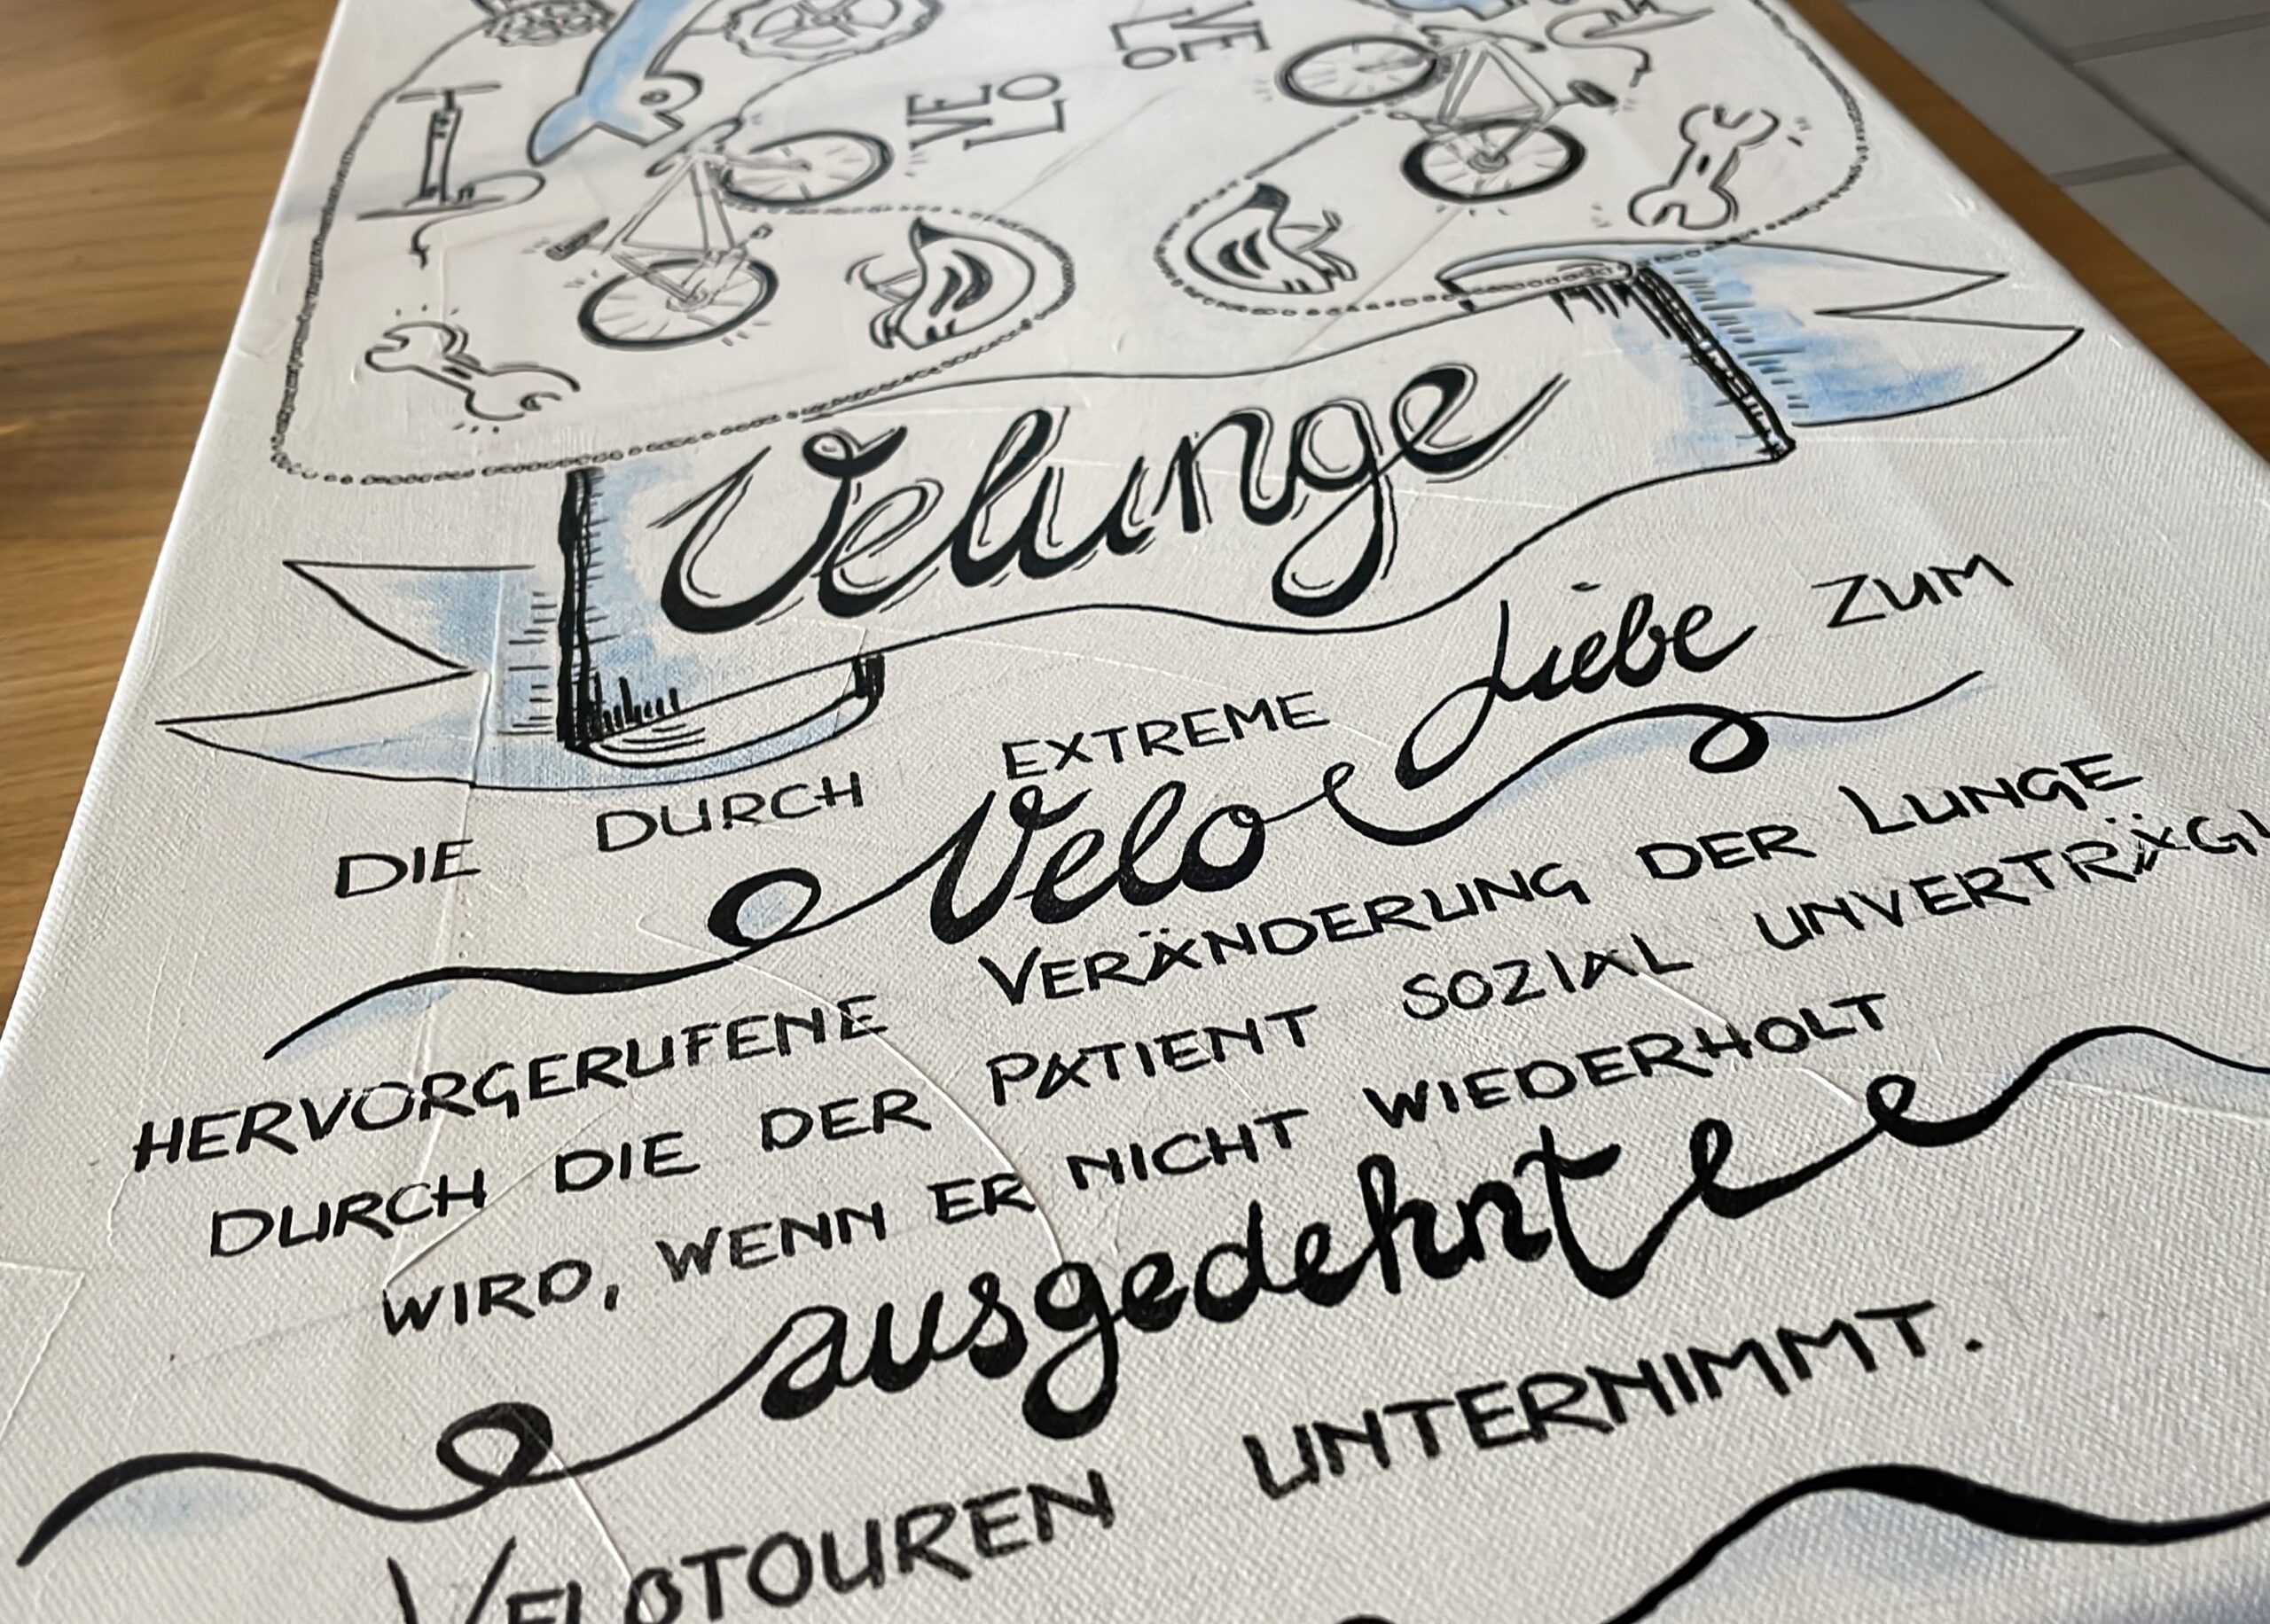 VE
LO
VE
LO
Velunge
DIE DURCH EXTREME Liebe ZUM
Velo
HERVORGERUFENE VERÄNDERUNG DER LUNGE
DURCH DIE DER PATIENT SOZIAL UNVERTRÄGL
WIRD, WENN ER NICHT WIEDERHOLT
ausgedehnte
VELOTOUREN UNTERNIMMT.